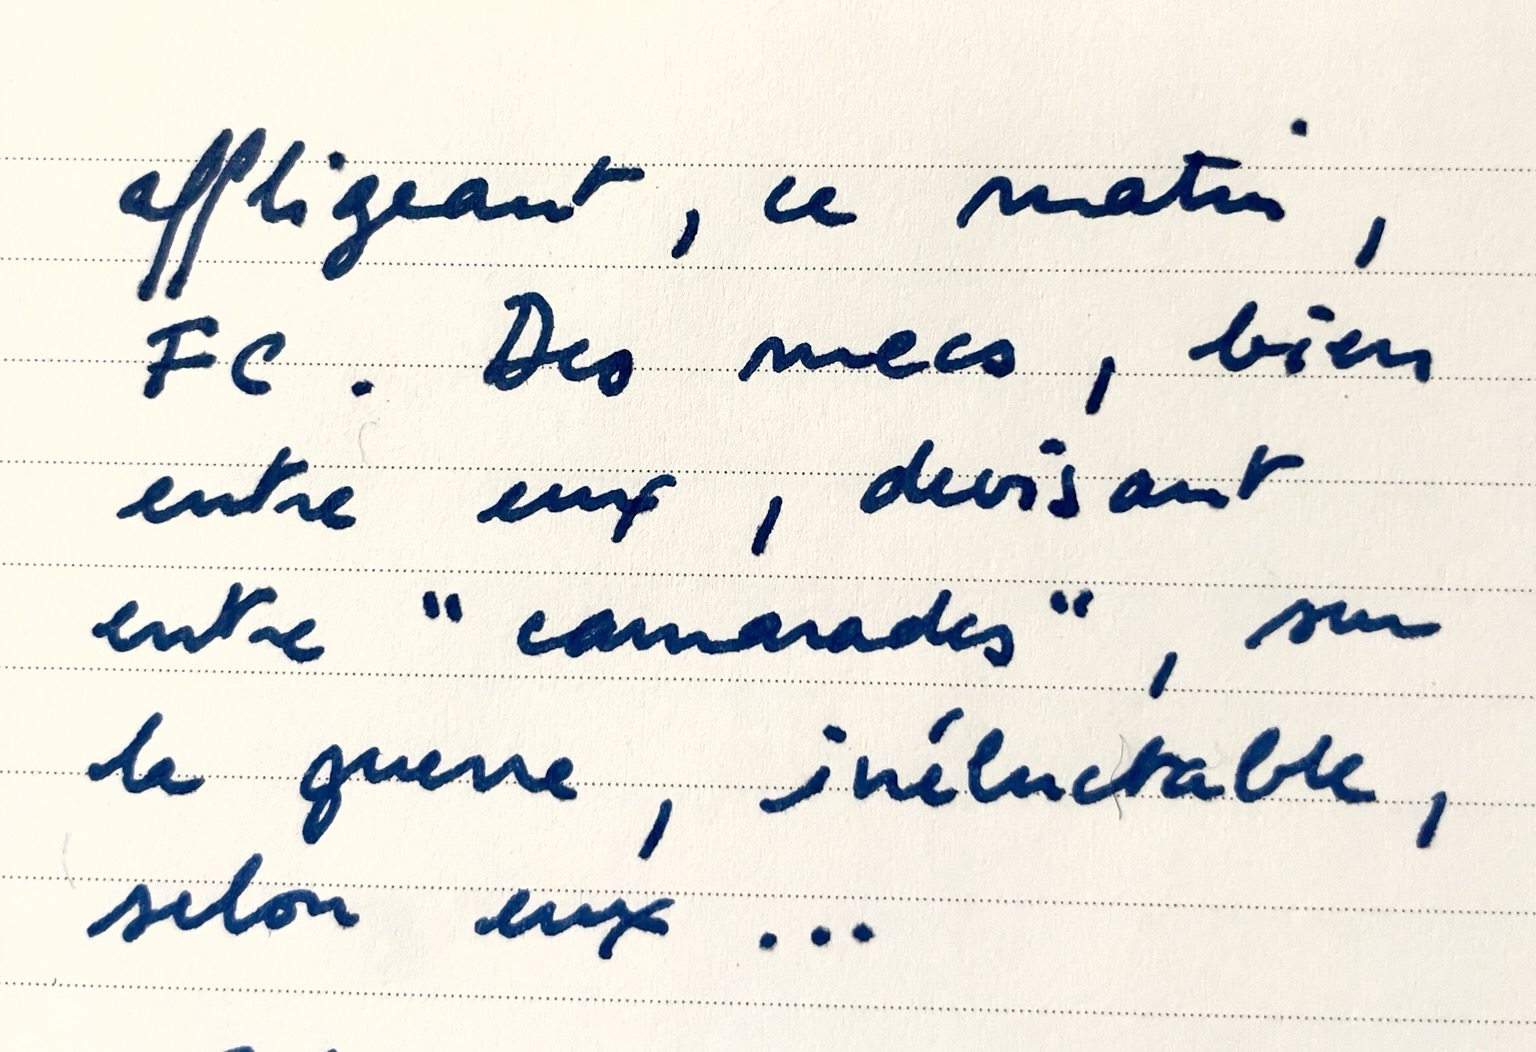 affligeant, ce matin,
FC. Des mecs, bien
entre eux, devisant
entre "camarades", sur
la guerre, inéluctable,
selon eux...